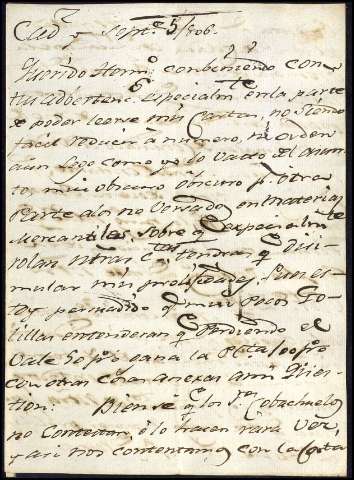 Cad.z y Sept.e 5/806.
Querido Herm.o conbeniendo con
tus advertenc.s Especialm.te en la parte
de poder leerse mis Cartas, no siendo
facil reducir a numero, ni orden
aun lego como yo lo vasto del asun
to, mui obscuro p.r otra
Parte a los no versados en materias
Mercantiles, sobre q.e especialm.te
rolan ntras C.tas, tendras q.e Disi-
mular mis prolijidades, Pues es-
toy persuadido q.e mui pocos Go-
lillas entenderan q.e Perdiendo el
Vale 50 p% gana la Plata 100 p%
con otras cosas anexas a mi Ques-
tion: Piense q.e los S.res Cobachuelos
no Contestan, ó lo hacen rara vez,
y asi nos contentamos con la Carta